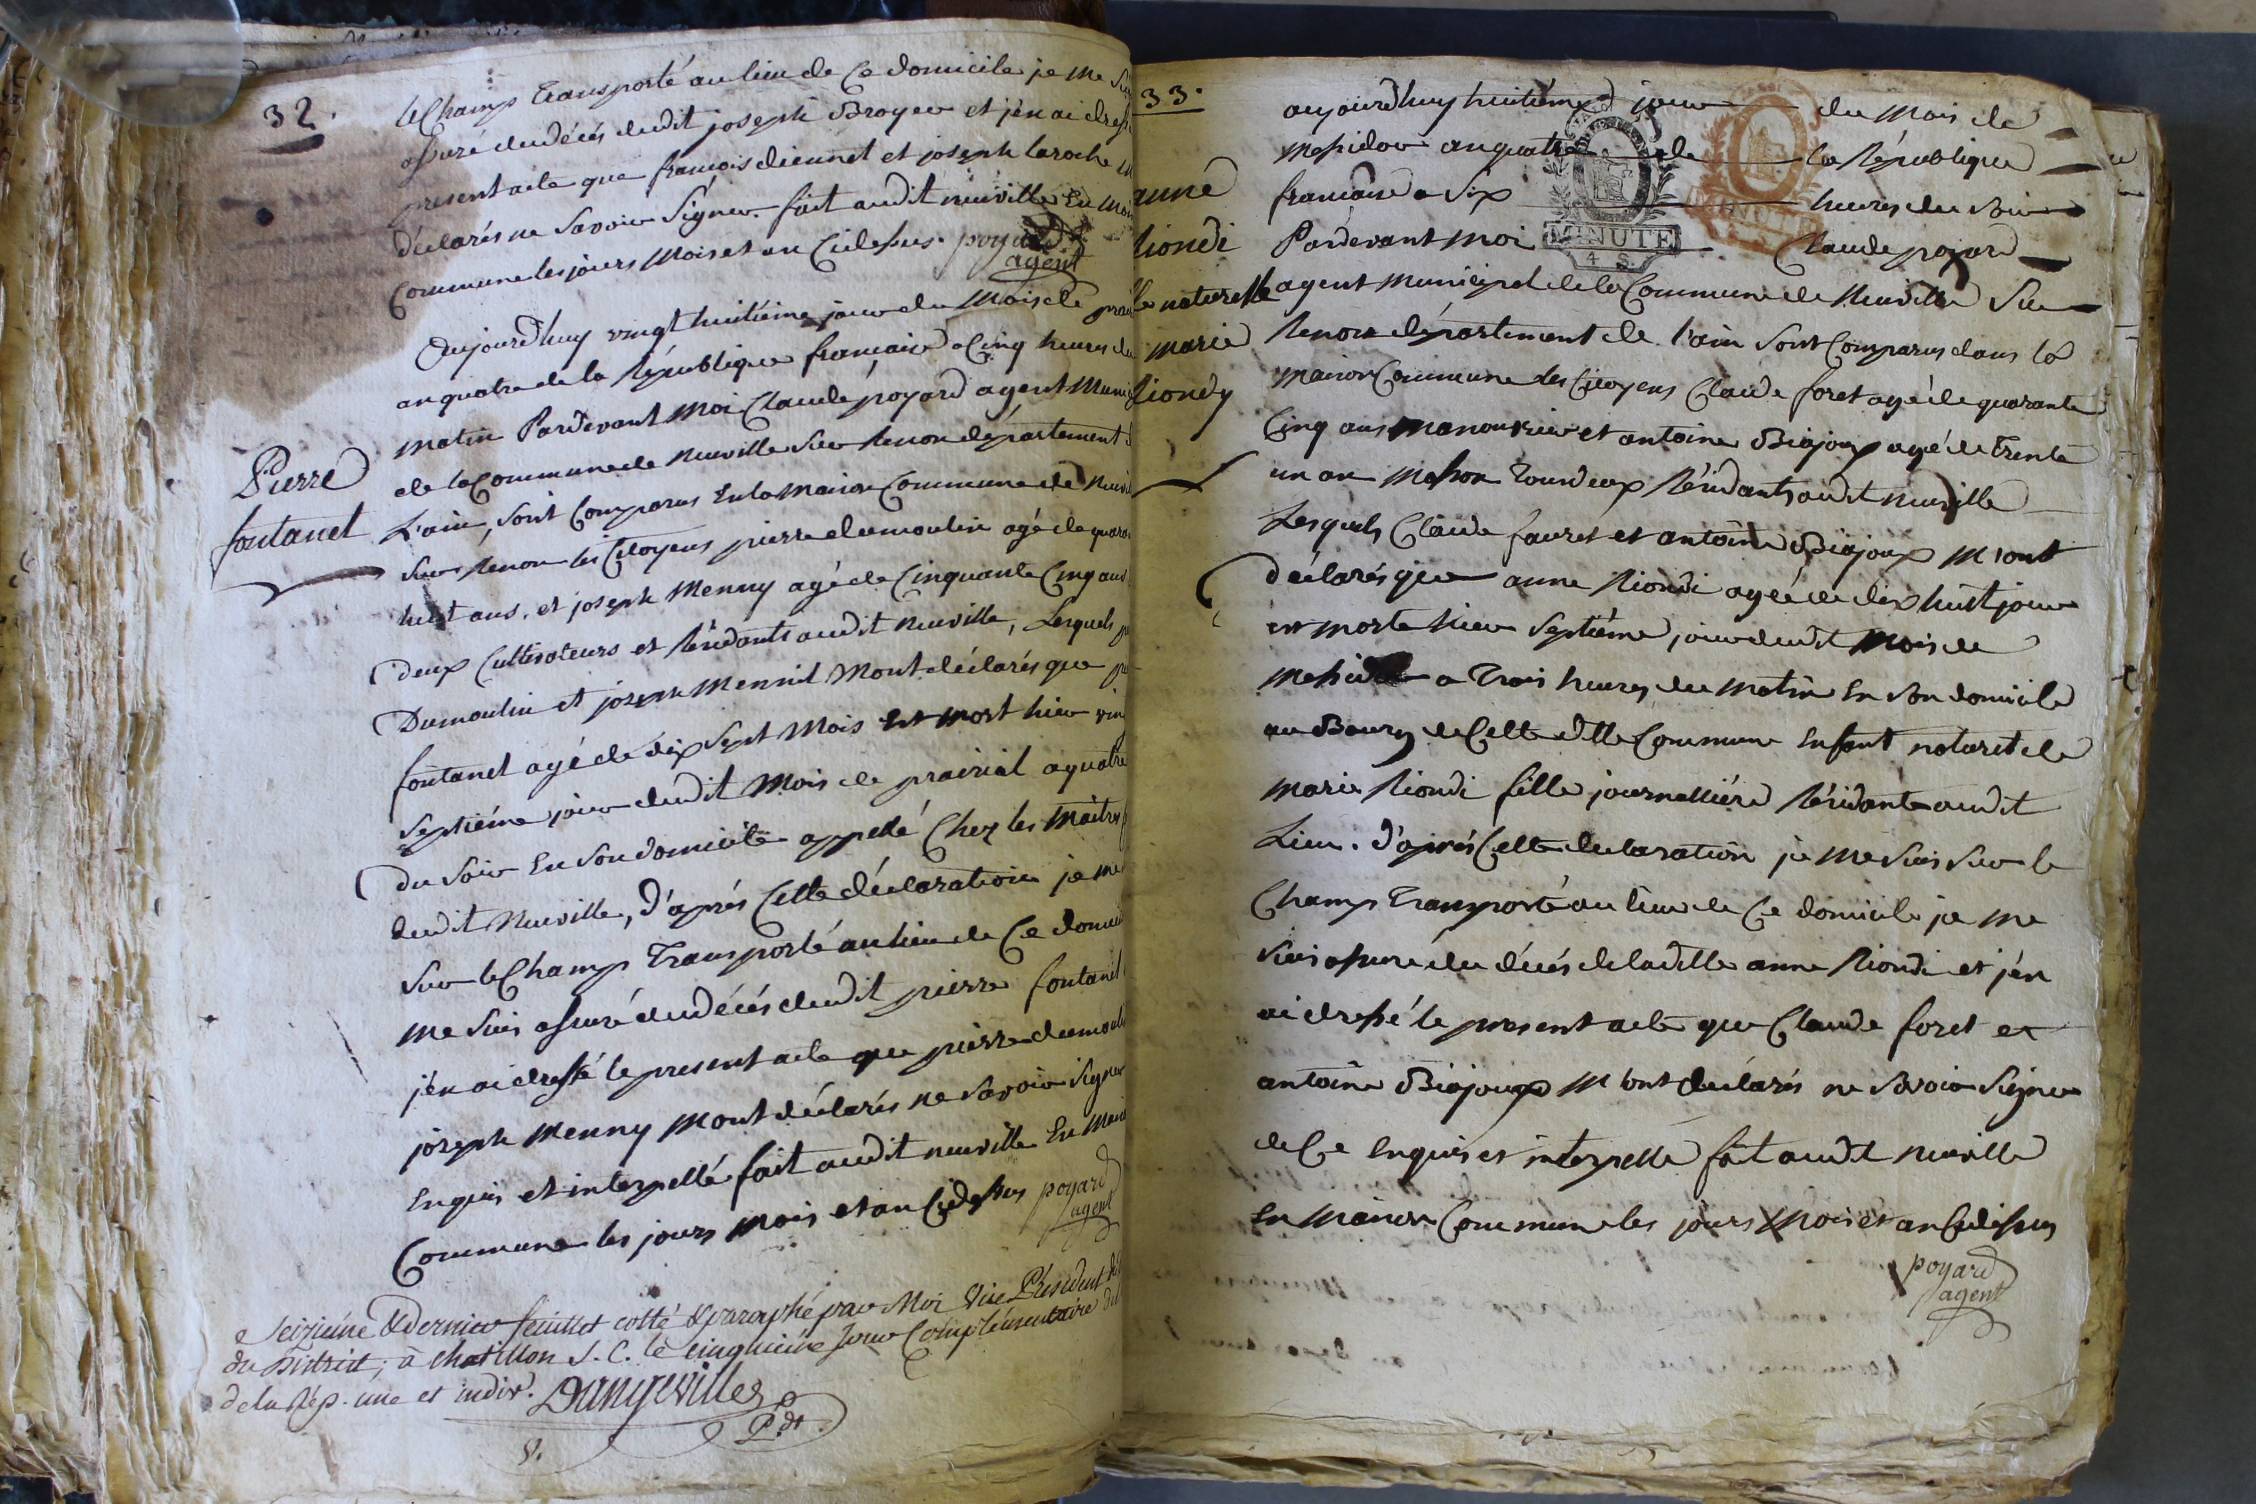 32.
le Champ transporté au lieu de Ce domicile je me
assuré du décés dudit joseph Broyer et j'en ai dressé
present acte que francois dieunet et joseph laroche
déclarés ne savoir Signer. fait audit neuville En
Commune les jours Mois et an Cidessus. poyard
agent
Pierre
fontanet
Aujourd'huy vingt huitiéme jour du Mois de
an quatre de la République francaise a Cinq heures du
matin Pardevant Moi Claude poyard agent
de la Commune de neuville sur Renon département
L'ain, sont Comparus En la Maison Commune de
sur Renon les Citoyens pierre dumoulin agé de
huit ans, et joseph Menny agé de Cinquante Cinq ans
deux Cultivateurs et Résidants audit neuville, Lesquels
Dumoulin et joseph Mennit Mont déclarés que
fontanet agé de dix sept Mois Est mort hier
septiéme jour dudit Mois de prairial a quatre
du soir En son domicile appellé Chez les Maitres
dudit Neuville, D'aprés Cette déclaration je me
sur le Champ transporté au lieu de Ce
me suis assuré du décés dudit pierre fontanet
j'en ai dressé le present acte que pierre
joseph Menny Mont déclarés ne savoir signer
Enquis et interpellé fait audit neuville En
Commune les jours Mois et an Cidessus poyard
agent
Seizième & dernier feuillet cotté & paraphé par Moi Vice Président
du District, à Chatillon S. C. le cinquieme Jour Complémentaire
de la Rép. une et indiv.
Dangeville
P.dt
V.
33.
anne
Riondi
naturelle
marie
Riondy
MINUTE
4 S.
aujourd'huy huitiéme jour du Mois de
Messidor an quatre de la République
francaise a Six heures du soir
Pardevant Moi Claude poyard
agent Municipal de la Commune de Neuville Sur
Renon département de l'ain sont Comparus dans la
maison Commune les Citoyens Claude foret agé de quarante
Cinq ans manouvrier et antoine Biajoux agé de trente
un an Masson tous deux Résidants audit neuville
Lesquels Claude fauret et antoine Biajoux M'ont
déclarés que anne Riondi agée de dix huit jour
est morte hier septiéme jour dudit Mois de
Messidor a trois heures du Matin En son domicile
au Bourg de Cette ditte Commune Enfant naturel de
Marie Riondi fille journalliére Résidante audit
Lieu. D'aprés Cette declaration je me suis sur le
Champ transporté au lieu de Ce domicile je me
suis assuré du décés de laditte anne Riondi et j'en
ai dressé le present acte que Claude foret et
antoine Biajoux M'ont declarés ne savoir signer
de Ce Enquis et interpellé fait audit neuville
En Maison Commune les jours Mois et an Cidessus
poyard
agent